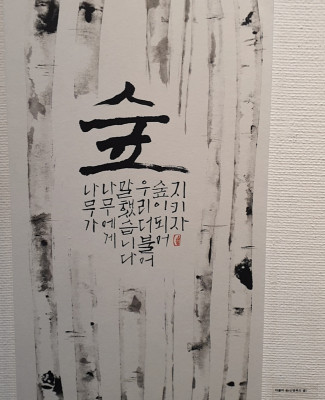 숲
나무가
나무에게
말했습니다
우리더불어
숲이되어
지키자